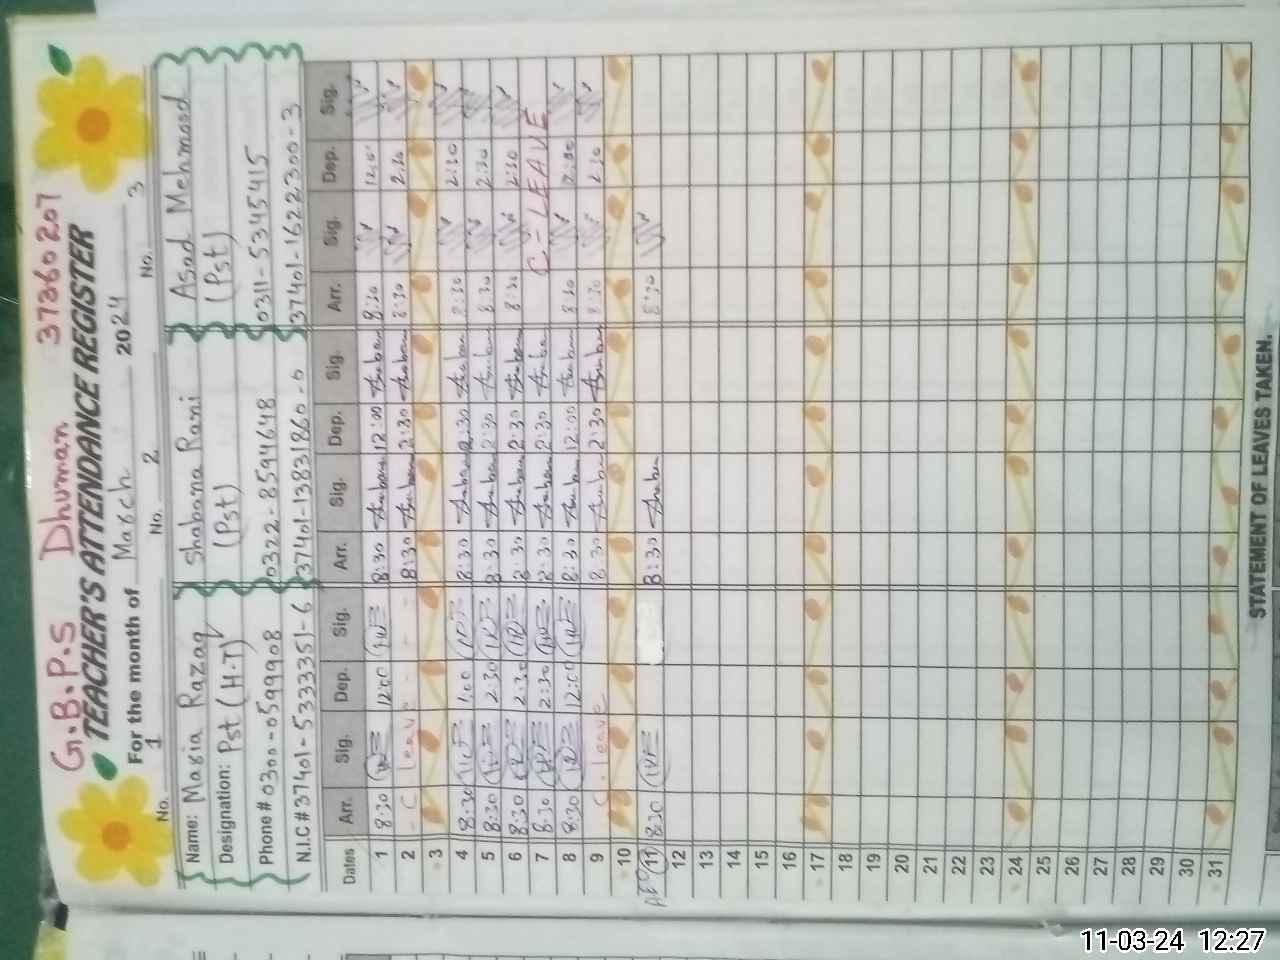 G.B.P.S Dhuman 37360207
TEACHER'S ATTENDANCE REGISTER
For the month of March 2024
No. 1 No. 2 No. 3
Name: Maria Razaq Shabana Rani Asad Mehmood
Designation: Pst (H.T) (Pst) (Pst)
Phone # 0300-0599908 0322-8594648 0311-5345415
N.I.C # 37401-5333351-6 37401-13831860-0 37401-1622300-3
Dates Arr. Sig. Dep. Sig. Arr. Sig. Dep. Sig. Arr. Sig. Dep. Sig.
1 8:30 12:00 8:30 Shaban 12:00 Shaban 8:30
2 C leave 8:30 Shaban 2:30 Shaban 8:30 2:30
3
4 8:30 1:00 8:30 Shaban 2:30 Shaban 8:30 2:30
5 8:30 2:30 8:30 Shaban 2:30 Shaban 8:30 2:30
6 8:30 2:30 8:30 Shaban 2:30 Shaban 8:30 2:30
7 8:30 2:30 8:30 Shaban 2:30 Shaban C-LEAVE
8 8:30 12:00 8:30 Shaban 12:00 Shaban 8:30
9 C.leave 8:30 Shaban 2:30 Shaban 8:30 2:30
10
AEO 11 8:30 8:30 Shaban 8:30
12
13
14
15
16
17
18
19
20
21
22
23
24
25
26
27
28
29
30
31
STATEMENT OF LEAVES TAKEN.
11-03-24 12:27